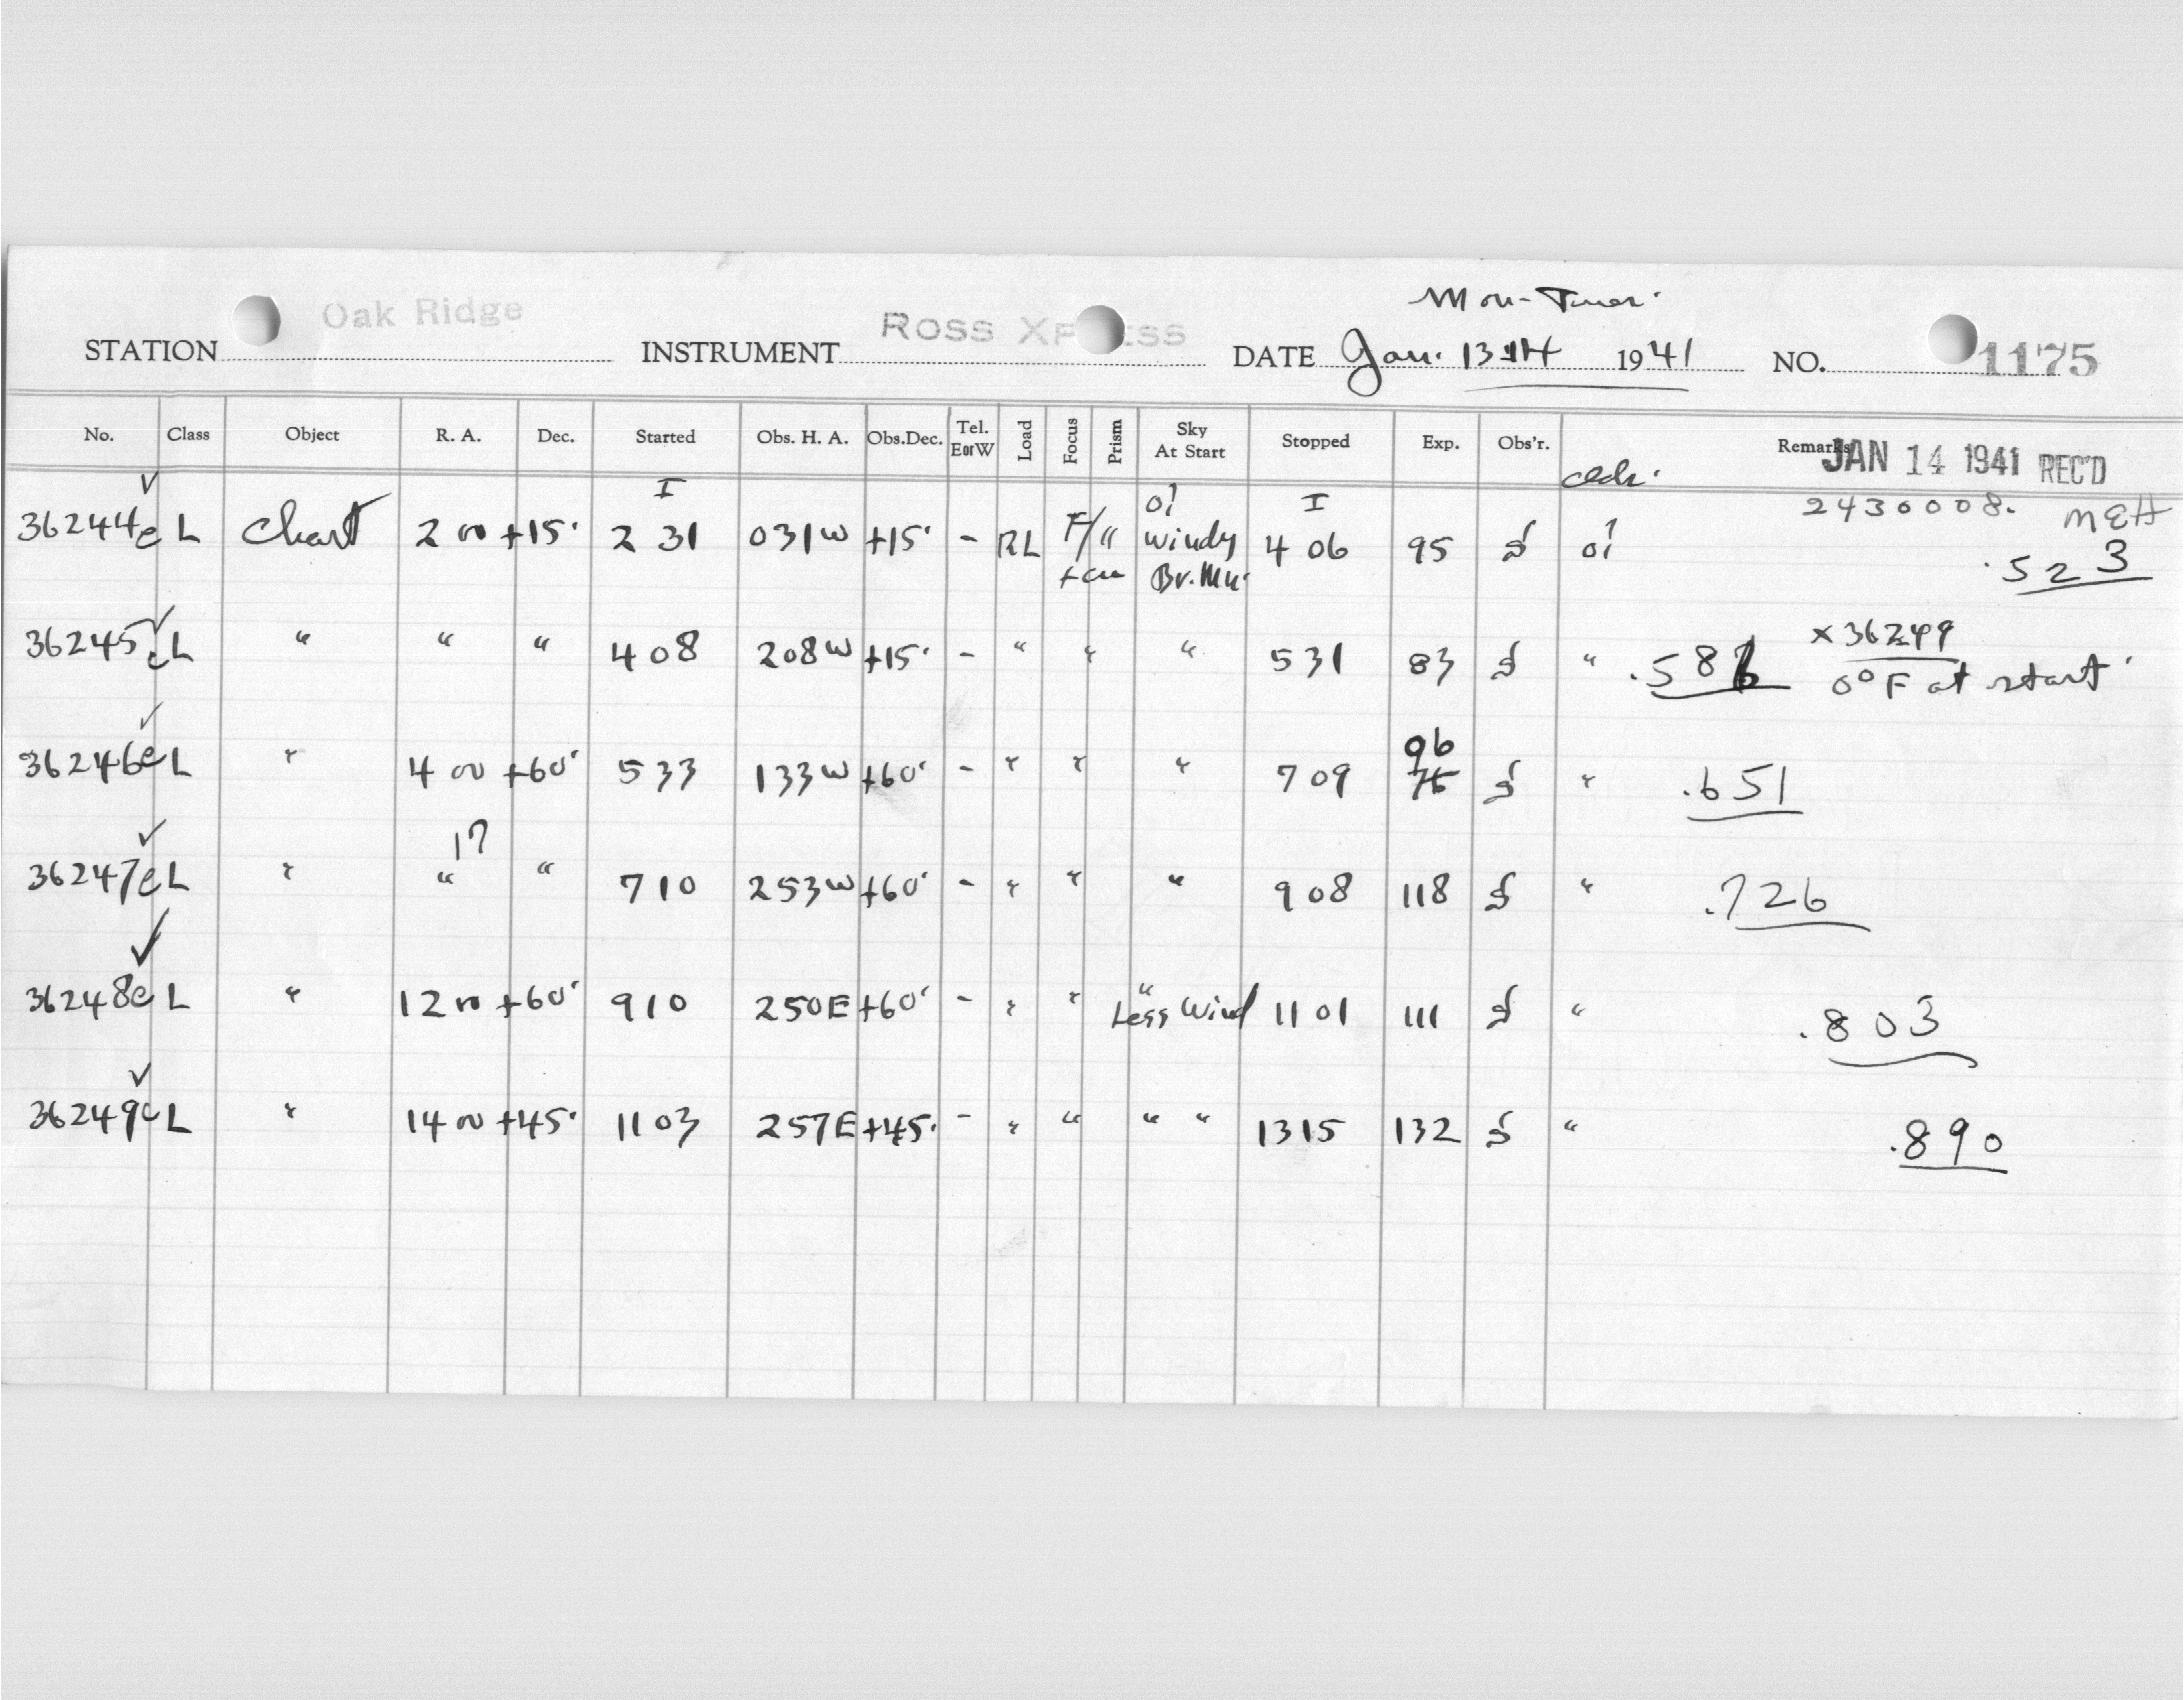 Mon-Tues.
STATION Oak Ridge INSTRUMENT ROSS XPRESS DATE Jan. 13-14 1941 NO. 1175
No. Class Object R. A. Dec. Started Obs. H. A. Obs.Dec. Tel. E or W Load Focus Prism Sky At Start Stopped Exp. Obs'r. Remarks JAN 14 1941 REC'D
I I 2430008. MEH
36244 L Chart 2 00 +15 2 31 031W +15 - RL F/" windy Br. Mn. 4 06 95 .523
36245 L " " " 4 08 208W +15 - " " " 5 31 83 " .58 x 36249
0°F at start
36246 L " 4 00 +60 5 33 133W +60 - " " " 7 09 96 " .651
17
36247 L " " " 7 10 253W +60 - " " " 9 08 118 " .726
36248 L " 12 00 +60 9 10 250E +60 - " " " Less Wind 11 01 111 " .803
36249 L " 14 00 +45 11 03 257E +45 - " " " " 1315 132 " .890